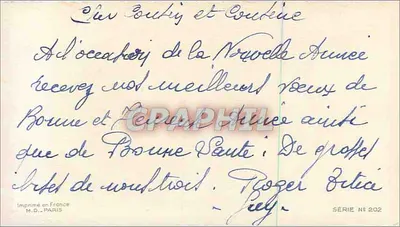 Cher Cousin et Cousine
A l'occasion de la Nouvelle Année
recevez nos meilleurs voeux de
Bonne et Heureuse Année ainsi
que de Bonne Santé. De grosses
bises de nous trois. Roger
Imprimé en France
M.D. - PARIS
SÉRIE N° 202